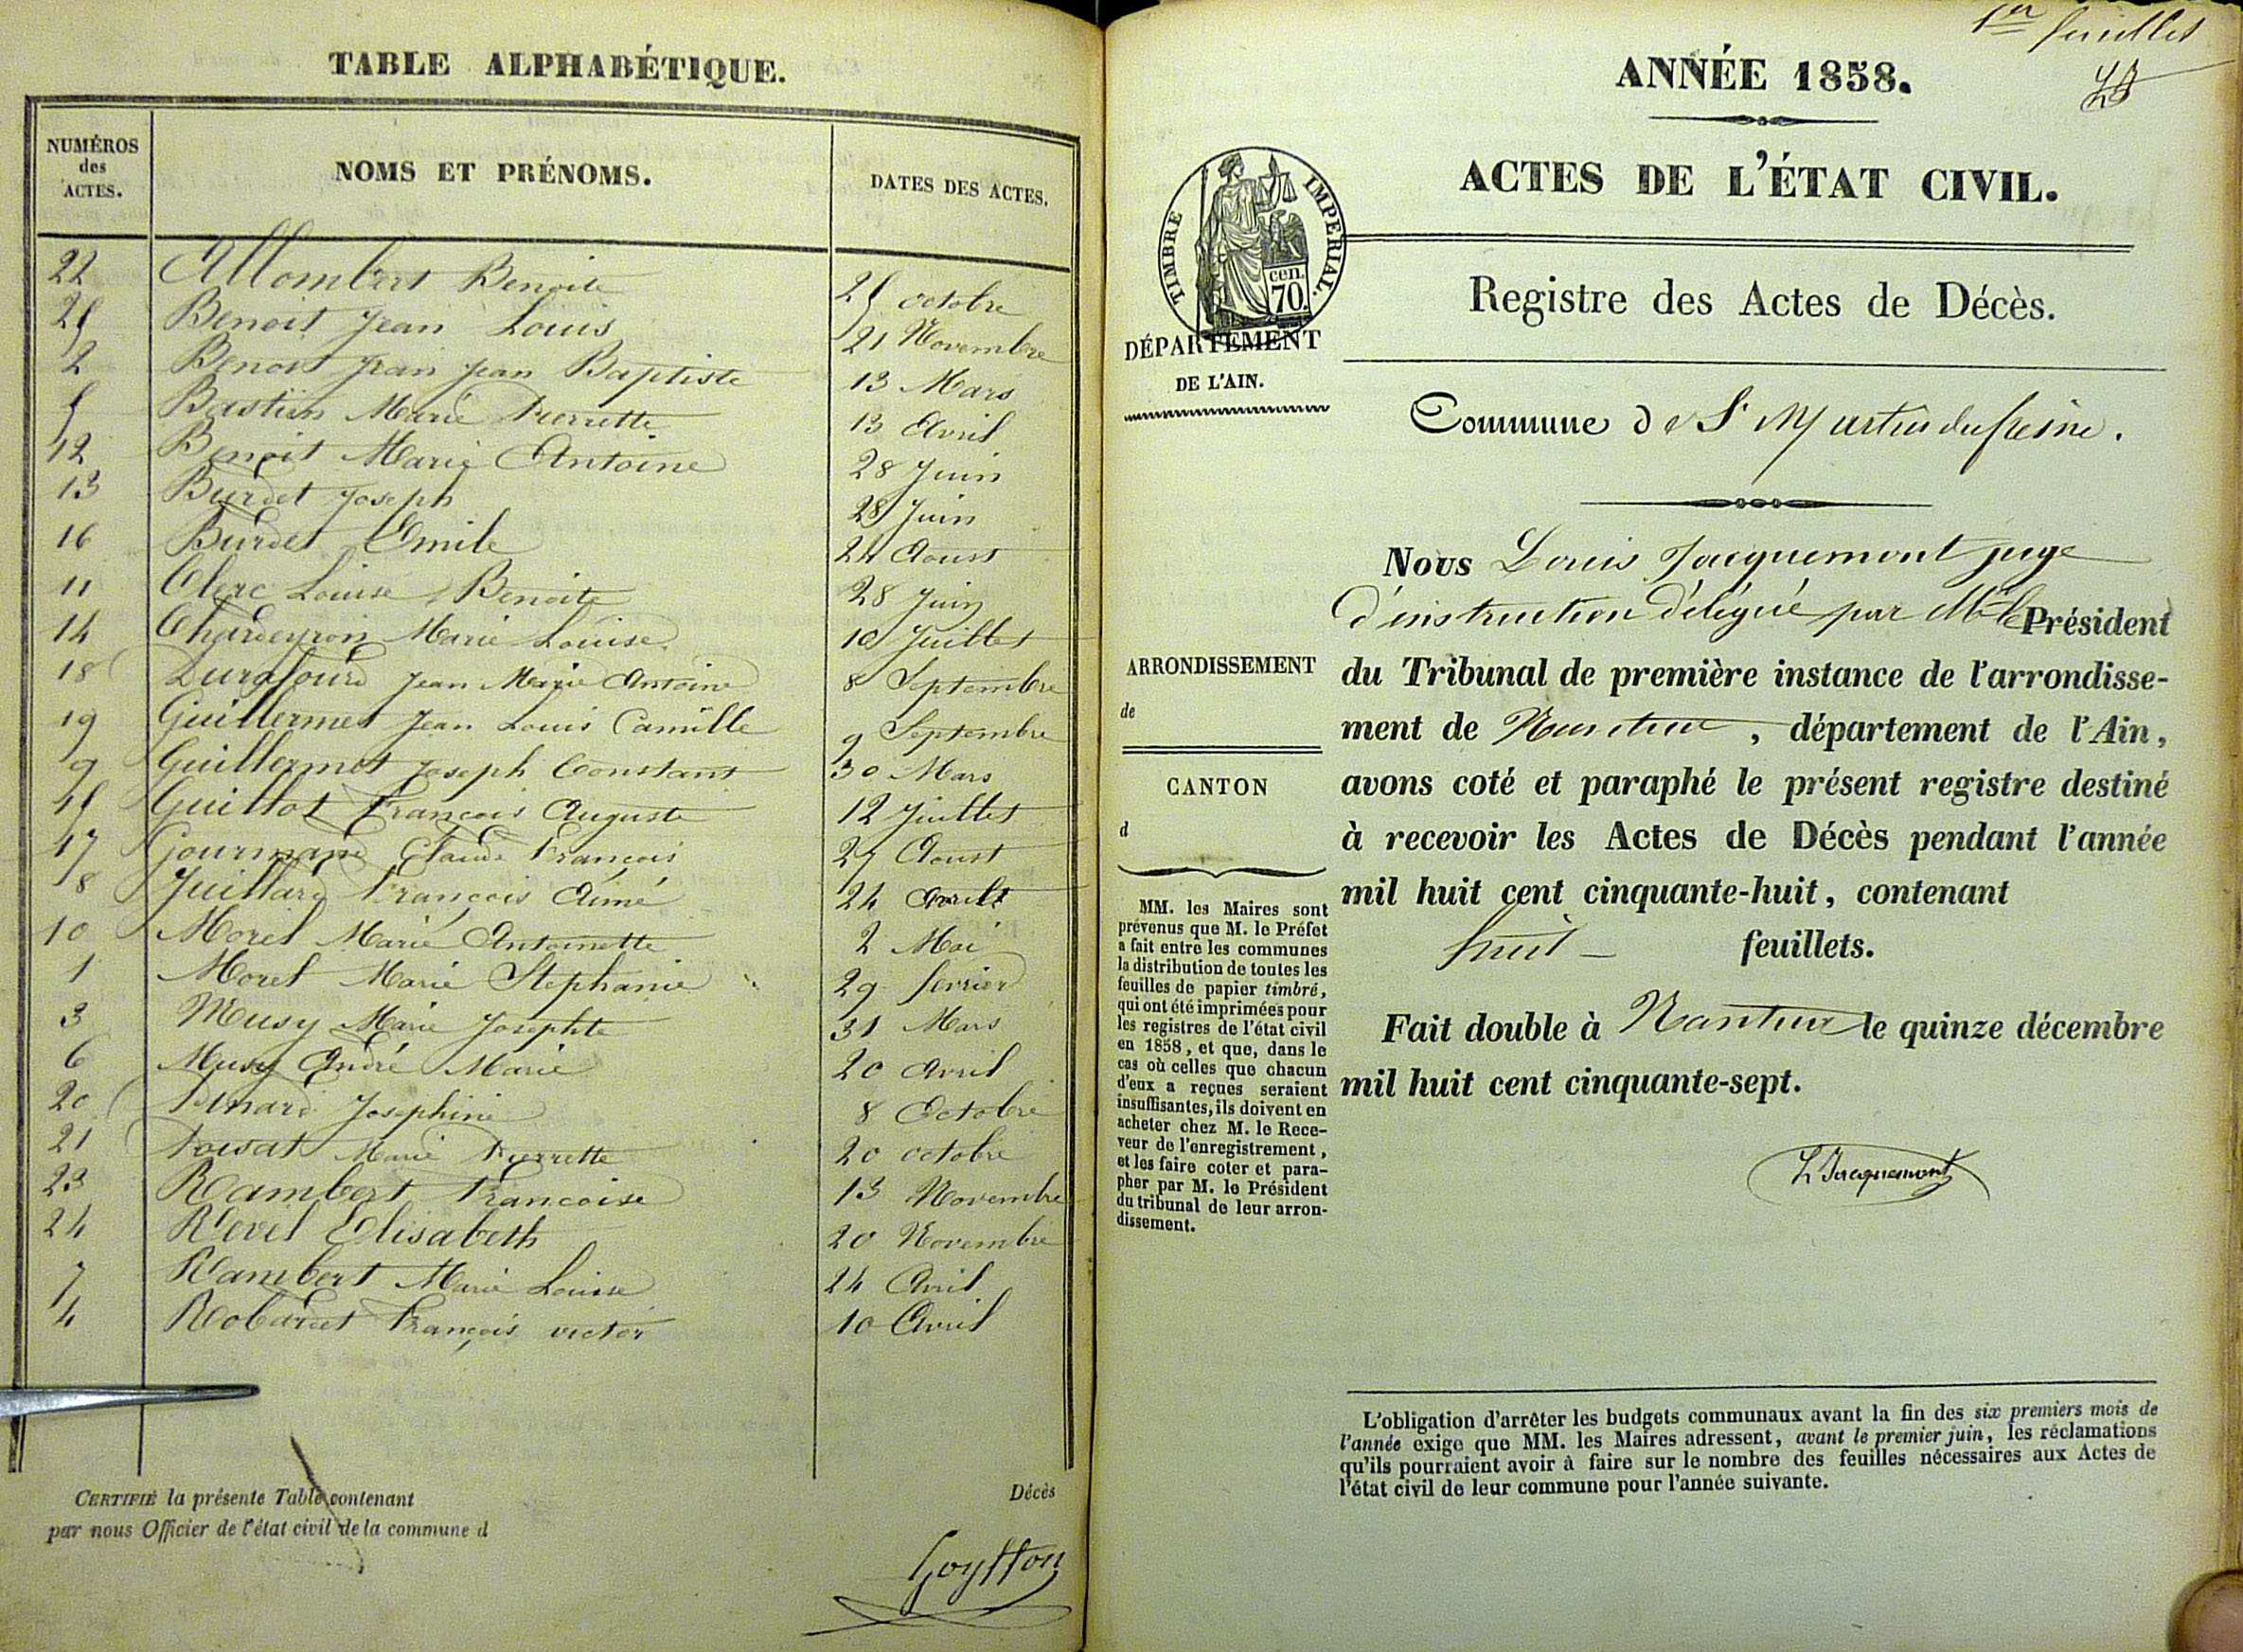 TABLE ALPHABÉTIQUE.
NUMÉROS
des
ACTES.
NOMS ET PRÉNOMS.
DATES DES ACTES.
22 Allombert Benoite 25 octobre
25 Benoit Jean Louis 21 Novembre
2 Benoit Jean Jean Baptiste 13 Mars
5 Bastien Marie Pierrette 13 Avril
12 Benoit Marie Antoine 28 Juin
13 Burdet Joseph 28 Juin
16 Burdet Emile 24 Aoust
11 Clerc Louise Benoite 28 Juin
14 Chardeyron Marie Louise 10 Juillet
18 Durafourd Jean Marie Antoine 8 Septembre
19 Guillermet Jean Louis Camille 9 Septembre
9 Guillermet Joseph Constant 30 Mars
15 Guillot François Auguste 12 Juillet
17 Gourmand Claude François 27 Aoust
8 Juillard François Aimé 24 Avril
10 Morel Marie Antoinette 2 Mai
1 Morel Marie Stephanie 29 fevrier
3 Musy Marie Josephte 31 Mars
6 Musy André Marie 20 Avril
20 Josephine 8 Octobre
21 Marie Pierrette 20 octobre
23 Rambert Francoise 13 Novembre
24 Revil Elisabeth 20 Novembre
7 Rambert Marie Louise 24 Avril
4 Robardet François victor 10 Avril
CERTIFIÉ la présente Table contenant Décès
par nous Officier de l'état civil de la commune d
Goyffon
1er feuillet
ANNÉE 1858.
ACTES DE L'ÉTAT CIVIL.
TIMBRE IMPERIAL.
cen.
70.
DÉPARTEMENT
DE L'AIN.
Registre des Actes de Décès.
Commune de St Martin du fresne.
Nous Louis Jacquemont juge
d'instruction délégué par Mr le Président
du Tribunal de première instance de l'arrondisse-
ment de Nantua, département de l'Ain,
avons coté et paraphé le présent registre destiné
à recevoir les Actes de Décès pendant l'année
mil huit cent cinquante-huit, contenant
huit feuillets.
Fait double à Nantua le quinze décembre
mil huit cent cinquante-sept.
L Jacquemont
ARRONDISSEMENT
de
CANTON
d
MM. les Maires sont
prévenus que M. le Préfet
a fait entre les communes
la distribution de toutes les
feuilles de papier timbré,
qui ont été imprimées pour
les registres de l'état civil
en 1858, et que, dans le
cas où celles que chacun
d'eux a reçues seraient
insuffisantes, ils doivent en
acheter chez M. le Rece-
veur de l'enregistrement,
et les faire coter et para-
pher par M. le Président
du tribunal de leur arron-
dissement.
L'obligation d'arrêter les budgets communaux avant la fin des six premiers mois de
l'année exige que MM. les Maires adressent, avant le premier juin, les réclamations
qu'ils pourraient avoir à faire sur le nombre des feuilles nécessaires aux Actes de
l'état civil de leur commune pour l'année suivante.